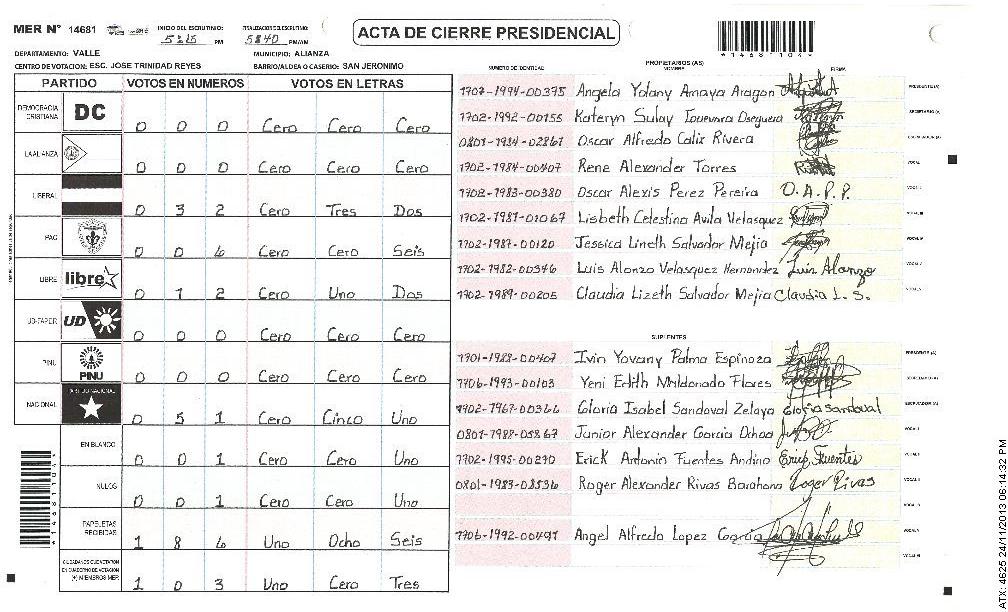 MER N° 14681
INICIO DEL ESCRUTINIO:
5:25 PM
FINALIZACION DEL ESCRUTINIO:
5:40 PM/AM
ACTA DE CIERRE PRESIDENCIAL
*14681104*
DEPARTAMENTO: VALLE
MUNICIPIO: ALIANZA
CENTRO DE VOTACION: ESC. JOSE TRINIDAD REYES
BARRIO/ALDEA O CASERIO: SAN JERONIMO
PARTIDO VOTOS EN NUMEROS VOTOS EN LETRAS
DEMOCRACIA CRISTIANA DC 0 0 0 Cero Cero Cero
LA ALIANZA 0 0 0 Cero Cero Cero
LIBERAL 0 3 2 Cero Tres Dos
PAC 0 0 6 Cero Cero Seis
LIBRE libre 0 1 2 Cero Uno Dos
UD-FAPER UD 0 0 0 Cero Cero Cero
PINU PINU 0 0 0 Cero Cero Cero
NACIONAL PARTIDO NACIONAL 0 5 1 Cero Cinco Uno
EN BLANCO 0 0 1 Cero Cero Uno
NULOS 0 0 1 Cero Cero Uno
PAPELETAS RECIBIDAS 1 8 6 Uno Ocho Seis
CIUDADANOS QUE VOTARON EN CUADERNO DE VOTACION (+) MIEMBROS MER 1 0 3 Uno Cero Tres
PROPIETARIOS (AS)
NUMERO DE IDENTIDAD NOMBRE FIRMA
1707-1994-00375 Angela Yolany Amaya Aragon PRESIDENTE (A)
1702-1992-00155 Kateryn Sulay SECRETARIO (A)
0801-1984-02867 Oscar Alfredo Calix Rivera ESCRUTADOR (A)
1702-1984-00407 Rene Alexander Torres VOCAL
1702-1983-00380 Oscar Alexis Perez Pereira O. A. P. P. VOCAL
1702-1987-01067 Lisbeth Celestina Avila Velasquez VOCAL III
1702-1987-00120 Jessica Lineth Salvador Mejia VOCAL
1702-1982-00346 Luis Alonzo Velasquez Hernandez Luis Alonzo VOCAL
1702-1989-00205 Claudia Lizeth Salvador Mejia Claudia L. S. VOCAL
SUPLENTES
1701-1988-00407 Ivin Yovany Palma Espinoza PRESIDENTE (A)
1706-1993-00103 Yeni Edith Maldonado Flores SECRETARIO (A)
1702-1967-00366 Gloria Isabel Sandoval Zelaya Gloria Sandoval ESCRUTADOR (A)
0801-1988-05867 Junior Alexander Garcia Ochoa VOCAL
1702-1995-00270 Erick Antonio Fuentes Andino Erick Fuentes VOCAL
0801-1983-08536 Roger Alexander Rivas Barahona Roger Rivas VOCAL
1706-1992-00497 Angel Alfredo Lopez Garcia VOCAL
*14681104*
ATX: 4625 24/11/2013 06:14:32 PM